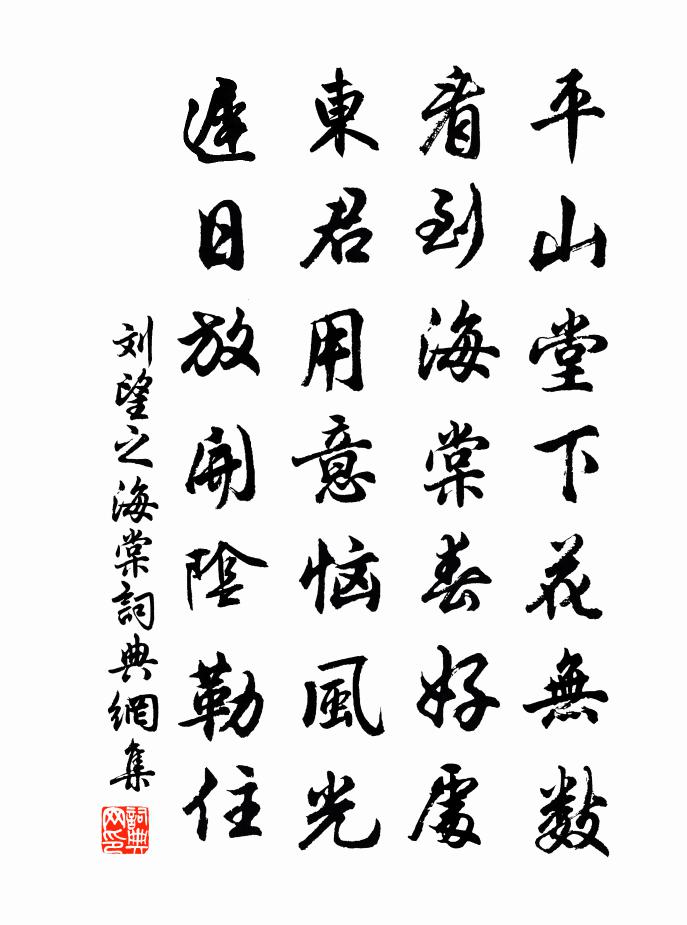 平山堂下花無数
看到海棠春好處
東君用意惱風光
遲日放開陰勒住
刘望之海棠詞典網集
詞典网印